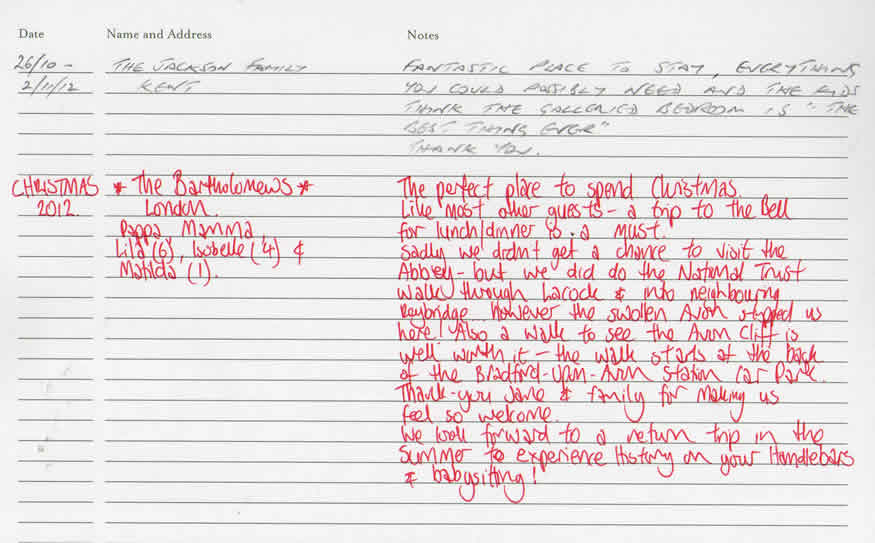 Date Name and Address Notes
26/10 - THE JACKSON FAMILY FANTASTIC PLACE TO STAY, EVERYTHING
2/11/12 KENT YOU COULD POSSIBLY NEED AND THE KIDS
THINK THE GALLERIED BEDROOM IS "THE
BEST THING EVER"
THANK YOU.
CHRISTMAS * The Bartholomews * The perfect place to spend Christmas.
2012. London. Like most other guests - a trip to the Bell
Pappa, Mamma, for lunch/dinner is a must.
Lila (6), Isobelle (4) & Sadly we didnt get a chance to visit the
Matilda (1). Abbey - but we did do the National Trust
walk through Lacock & into neighbouring
Reybridge... However the swollen Avon stopped us
here! Also a walk to see the Avon Cliff is
well worth it - the walk starts at the back
of the Bradford-Upon-Avon Station Car Park.
Thank-you Jane & family for making us
feel so welcome.
We look forward to a return trip in the
summer to experience History on your Handlebars
& babysitting!